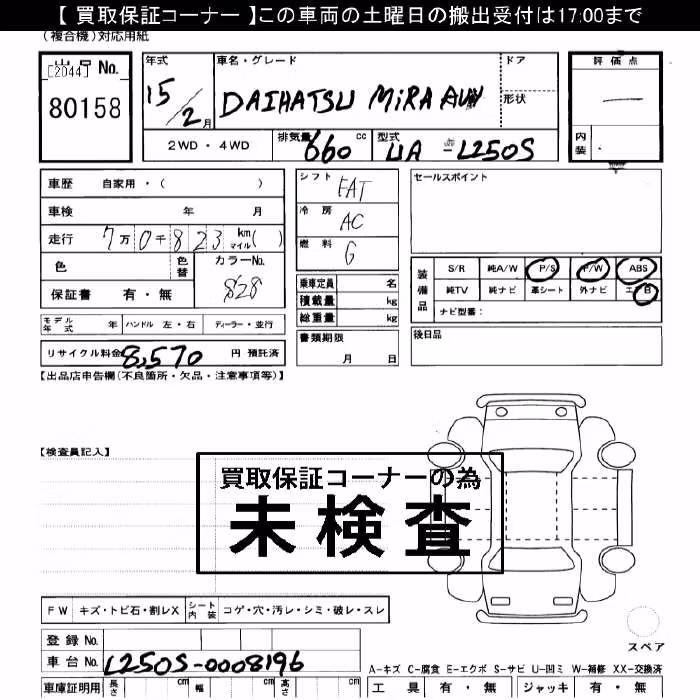 【 買取保証コーナー 】この車両の土曜日の搬出受付は17:00まで
(複合機)対応用紙
[2044] No. 80158
年式 15/2月
車名・グレード DAIHATSU MiRA
ドア
形状
評価点 —
内装
2WD・4WD
排気量 660 cc
型式 UA-L250S
車歴 自家用・( )
車検 年 月
走行 7万0千823 km マイル( )
色 色替 カラーNo. S28
保証書 有・無
シフト FAT
冷房 AC
燃料 G
乗車定員 名
積載量 kg
総重量 kg
書類期限 月 日
セールスポイント
装備品 S/R 純A/W P/S P/W ABS
純TV 純ナビ 革シート 外ナビ エアB
ナビ型番:
後日品
モデル年式 年 ハンドル 左・右 ディーラー・並行
リサイクル料金 8,570 円 預託済
【出品店申告欄(不良箇所・欠品・注意事項等)】
【検査員記入】
買取保証コーナーの為
未検査
FW キズ・トビ石・割レX シート内装 コゲ・穴・汚レ・シミ・破レ・スレ
スペア
登録No.
車台No. L250S-0008196
A-キズ C-腐食 E-エクボ S-サビ U-凹ミ W-補修 XX-交換済
車庫証明用 長さ cm 幅 cm 高さ cm
工具 有・無 ジャッキ 有・無